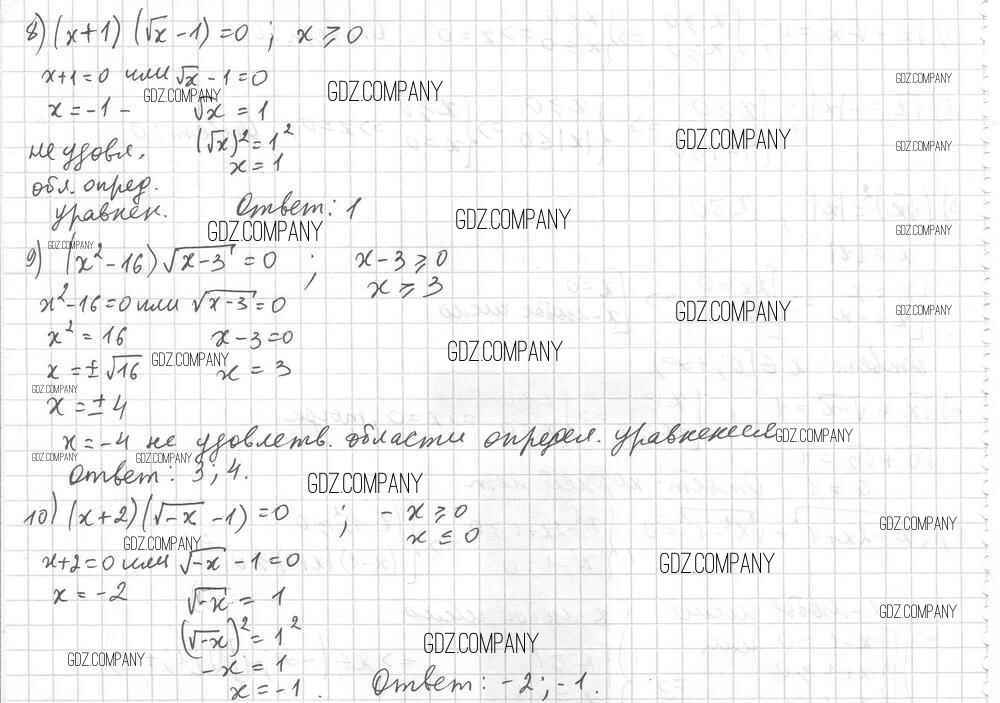 8) (x+1) (√x -1) = 0 ; x ≥ 0
x+1=0 или √x -1=0
GDZ.COMPANY
GDZ.COMPANY
GDZ.COMPANY
x=-1 - √x = 1
не удовл. (√x)² = 1²
GDZ.COMPANY
GDZ.COMPANY
x = 1
обл. опред.
уравнен. Ответ: 1
GDZ.COMPANY
GDZ.COMPANY
GDZ.COMPANY
GDZ.COMPANY
9) (x²-16) √x-3 = 0 ; x-3 ≥ 0
x ≥ 3
x²-16=0 или √x-3 = 0
GDZ.COMPANY
GDZ.COMPANY
x² = 16 x-3=0
GDZ.COMPANY
GDZ.COMPANY
x = ±√16 x = 3
GDZ.COMPANY
x = ±4
x=-4 не удовлетв. области определ. уравнения
GDZ.COMPANY
GDZ.COMPANY
GDZ.COMPANY
Ответ: 3; 4.
GDZ.COMPANY
10) (x+2) (√-x -1) = 0 ; -x ≥ 0
GDZ.COMPANY
x ≤ 0
GDZ.COMPANY
x+2=0 или √-x -1=0
GDZ.COMPANY
x = -2 √-x = 1
GDZ.COMPANY
(√-x)² = 1²
GDZ.COMPANY
GDZ.COMPANY
-x = 1
x = -1. Ответ: -2; -1.